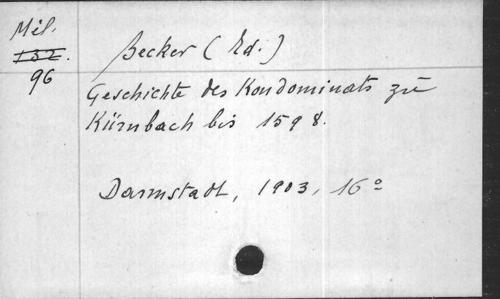 Mél.
132.
96
Becker (Ed.)
Geschichte des Kondominats zu
Kürnbach bis 1598.
Darmstadt, 1903, 16°